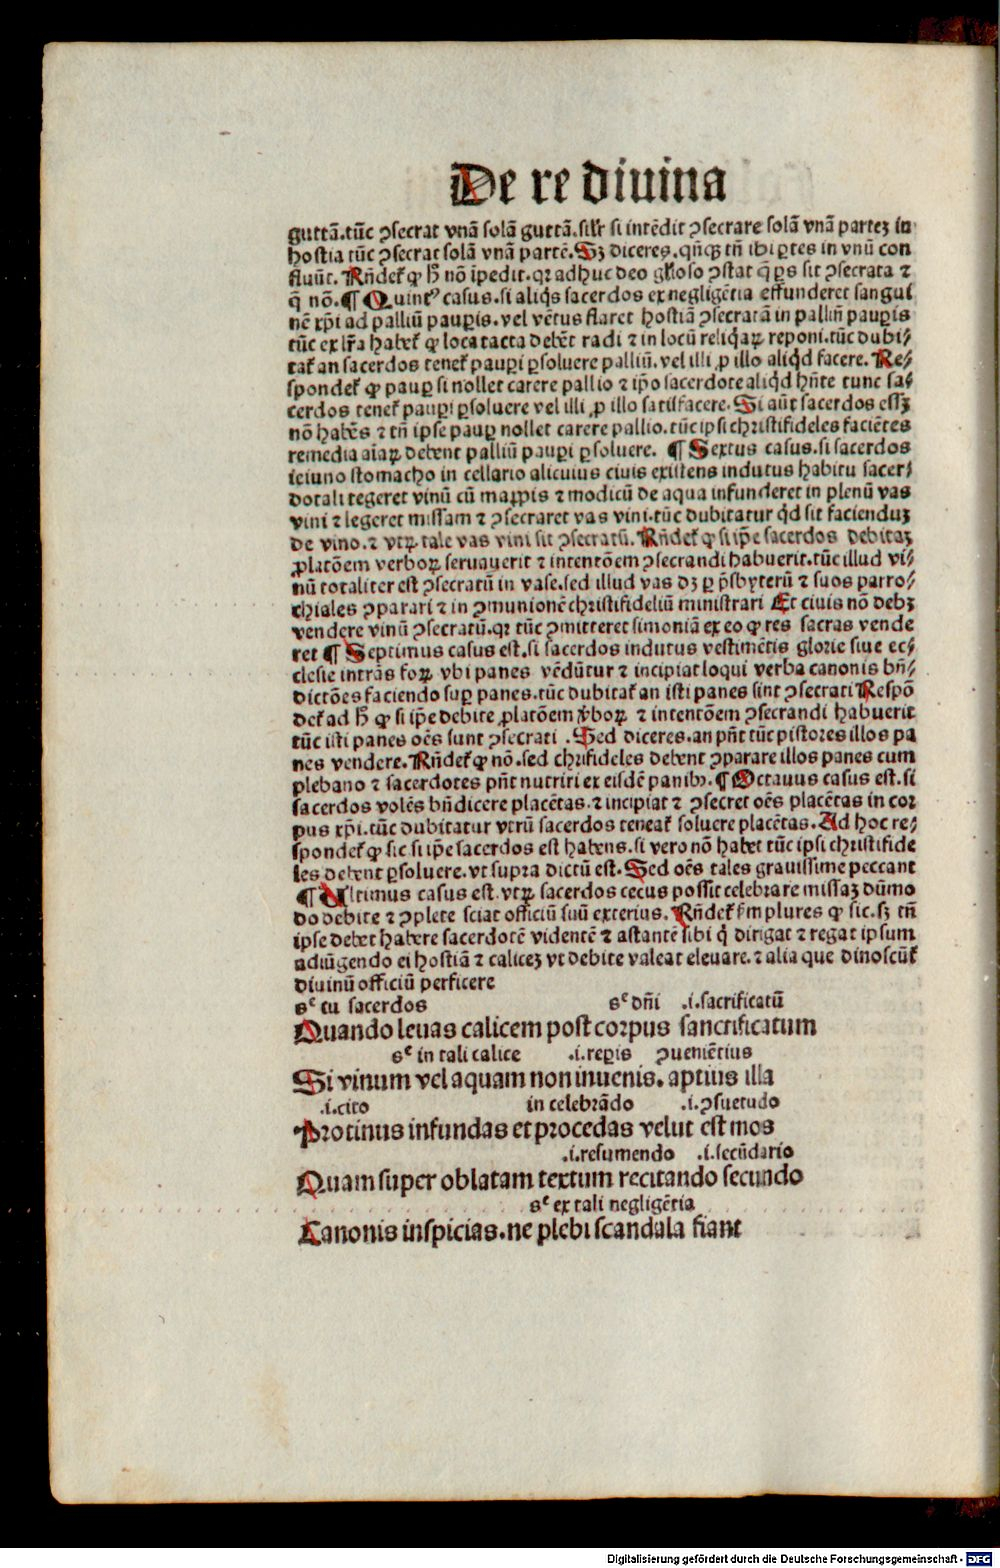 De re diuina
guttā.tūc ꝯsecrat vnā solā guttā.silr̄ si intēdit ꝯsecrare solā vnā parteꝫ in
hostia tūc ꝯsecrat solā vnā partē.Sꝫ diceres.qn̄qꝫ tn̄ ibi ꝑtes in vnū con
fluūt. Rn̄det̄ ꝙ h̄ nō īpedit.qꝛ adhuc deo gl̄ioso ꝯstat q̄ ꝑs sit ꝯsecrata ⁊
q̄ nō.¶ Quintꝰ casus.si aliq̇s sacerdos ex negligētia effunderet sangui
nē xp̄i ad palliū pauꝑis.vel vētus flaret hostiā ꝯsecratā in palliū pauꝑis
tūc ex lr̄a habet̄ ꝙ loca tacta debēt radi ⁊ in locū reliq̇aꝝ reponi.tūc dubi⸗
tat̄ an sacerdos tenet̄ pauꝑi ꝑsoluere palliū.vel illi ꝓ illo aliq̇d facere. Re⸗
spondet̄ ꝙ pauꝑ si nollet carere pallio ⁊ ip̄o sacerdote aliq̇d hn̄te tunc sa⸗
cerdos tenet̄ pauꝑi ꝑsoluere vel illi ꝓ illo satisfacere. Si aūt sacerdos essꝫ
nō habēs ⁊ tn̄ ipse pauꝑ nollet carere pallio.tūc ipsi christifideles faciētes
remedia aīaꝝ debent palliū pauꝑi ꝑsoluere. ¶ Sextus casus.si sacerdos
ieiuno stomacho in cellario alicuius ciuis existens indutus habitu sacer⸗
dotali tegeret vinū cū mappis ⁊ modicū de aqua infunderet in plenū vas
vini ⁊ legeret missam ⁊ ꝯsecraret vas vini.tūc dubitatur qd̄ sit facienduꝫ
de vino.⁊ vtꝝ tale vas vini sit ꝯsecratū. Rn̄det̄ ꝙ si ip̄e sacerdos debitaꝫ
ꝓlatōem verboꝝ seruauerit ⁊ intentōem ꝯsecrandi habuerit.tūc illud vi⸗
nū totaliter est ꝯsecratū in vase.sed illud vas dꝫ ꝑ p̄sbyterū ⁊ suos parro⸗
chiales ꝯparari ⁊ in ꝯmunionē christifideliū ministrari Et ciuis nō debꝫ
vendere vinū ꝯsecratū.qꝛ tūc ꝯmitteret simoniā ex eo ꝙ res sacras vende
ret ¶ Septimus casus est.si sacerdos indutus vestimētis glorie siue ec⸗
clesie intrās foꝝ vbi panes vēdūtur ⁊ incipiat loqui verba canonis bn̄⸗
dictōes faciendo suꝑ panes.tūc dubitat̄ an isti panes sint ꝯsecrati Respō
det̄ ad h̄ ꝙ si ip̄e debite ꝓlatōem v̄boꝝ ⁊ intentōem ꝯsecrandi habuerit
tūc isti panes oēs sunt ꝯsecrati .Sed diceres.an pn̄t tūc pistores illos pa
nes vendere. Rn̄det̄ ꝙ nō.sed chrifideles debent ꝯparare illos panes cum
plebano ⁊ sacerdotes pn̄t nutriri ex eisdē panibꝫ.¶ Octauus casus est.si
sacerdos volēs bn̄dicere placētas.⁊ incipiat ⁊ ꝯsecret oēs placētas in cor
pus xp̄i.tūc dubitatur vtrū sacerdos teneat̄ soluere placētas.Ad hoc re⸗
spondet̄ ꝙ sic si ip̄e sacerdos est habens.si vero nō habet tūc ipsi christifide
les debent ꝑsoluere.vt supra dictū est.Sed oēs tales grauissime peccant
¶ Ultimus casus est.vtꝝ sacerdos cecus possit celebrare missaꝫ dūmo
do debite ⁊ ꝯplete sciat officiū suū exterius. Rn̄det̄ ẜm plures ꝙ sic.sꝫ tn̄
ipse debet habere sacerdotē videntē ⁊ astantē sibi q̇ dirigat ⁊ regat ipsum
adiūgendo ei hostiā ⁊ caliceꝫ vt debite valeat eleuare.⁊ alia que dinoscūt̄
diuinū officiū perficere
sᶜ tu sacerdos sᶜ dn̄i .i.sacrificatū
Quando leuas calicem post corpus sanctificatum
sᶜ in tali calice .i.reꝑis ꝯueniētius
Si vinum vel aquam non inuenis. aptius illa
.i.cito in celebrādo .i.ꝯsuetudo
Protinus infundas et procedas velut est mos
.i.resumendo .i.secūdario
Quam super oblatam textum recitando secundo
sᶜ ex tali negligētia
Canonis inspicias.ne plebi scandala fiant
Digitalisierung gefördert durch die Deutsche Forschungsgemeinschaft - DFG